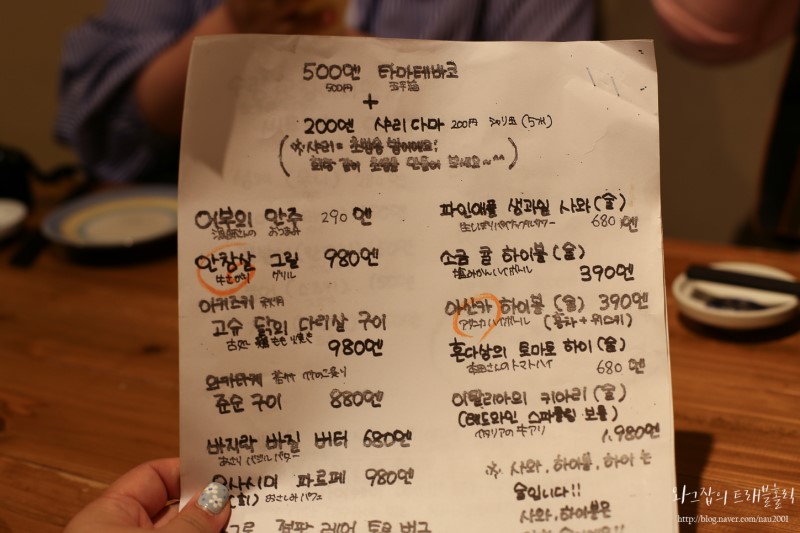 500엔 타마테바코
500円 玉手箱
+
200엔 샤리다마 200円 シャリ玉 (5개)
(※샤리=초밥용 밥이에요!
회랑 같이 초밥을 만들어 보세요~^^)
어부의 안주 290엔
漁師さんの おつまみ
안창살 그릴 980엔
牛さがり グリル
아키즈키
고슈 닭의 다리살 구이
もも
980엔
와카타케
죽순 구이 880엔
바지락 바질 버터 680엔
あさりバジルバター
오사시미 파르페 980엔
おさしみパフェ
파인애플 생과실 사와 (술)
生しぼりパイナップルサワー 680엔
소금 귤 하이볼 (술)
塩みかんハイボール
390엔
아신카 하이볼 (술) 390엔
ハイボール (홍차+위스키)
혼다상의 토마토 하이 (술)
本田さんのトマトハイ 680엔
이탈리아의 키아리 (술)
(레드와인 스파클링 보틀)
イタリアのキアリ
1,980엔
※ 사와, 하이볼, 하이 는
술입니다!!
사와, 하이볼은
와그잡의 트래블홀릭
http://blog.naver.com/nau2001